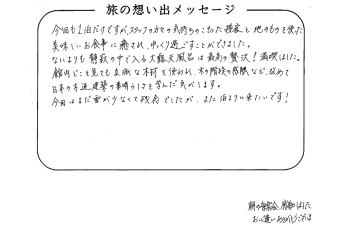 旅の想い出メッセージ
今回も1泊だけですが、スタッフの方々の気持ちのこもった接客と地のものを使った
美味しいお食事に癒され、ゆっくり過ごすことができました。
なによりも静寂の中で入る大露天風呂は最高の贅沢!満喫しました。
館内どこを見ても立派な木材を使われ、木の階段の感触など、改めて
日本の木造建築の素晴らしさを学んだ気がします。
今回はまだ雪が少なくて残念でしたが、また泊まりに来たいです!
感動しました
お心遣いありがとうございました